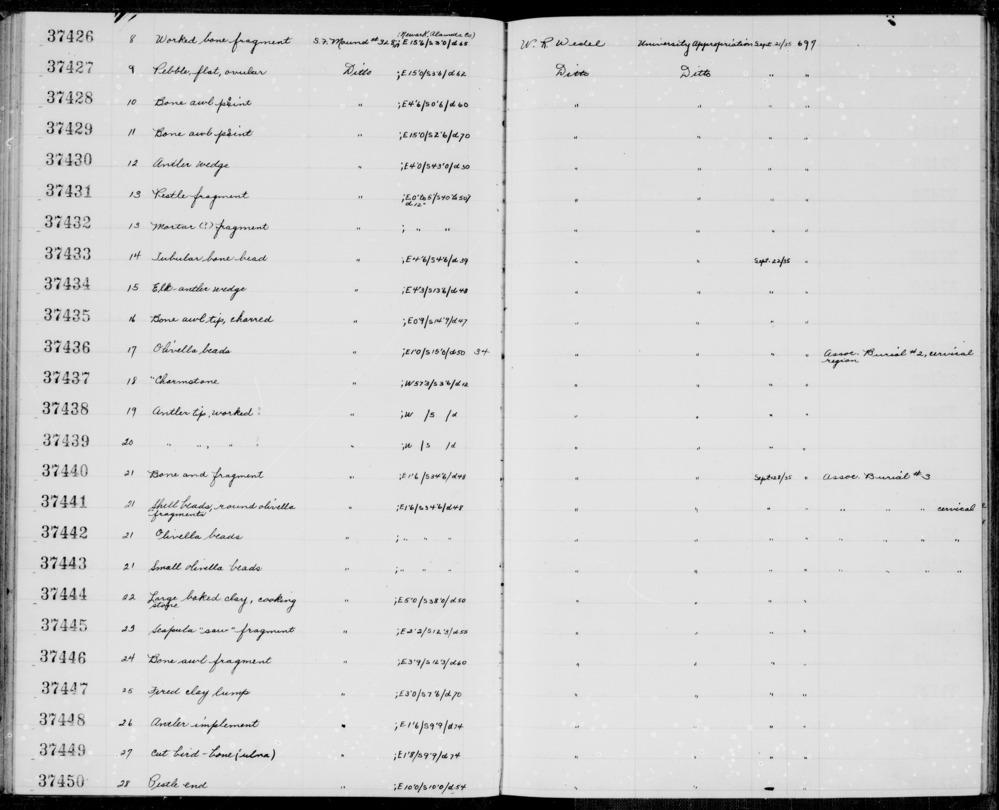 (Newark, Alameda Co)
37426 8 Worked bone fragment S.F. Mound #328 ;E15'6/S3'0/d65 W. R. Wedel University Appropriation Sept 21/35 697
37427 9 Pebble, flat, ovular Ditto ;E15'0/S3'6/d62 Ditto Ditto " "
37428 10 Bone awl point " ;E4'6/S0'6/d60 " " " "
37429 11 Bone awl point " ;E15'0/S2'6/d70 " " " "
37430 12 Antler wedge " ;E4'0/S43'0/d30 " " " "
37431 13 Pestle fragment " ;E0 to 5/S40 to 50/ " " " "
d12"
37432 13 Mortar (?) fragment " ; " " " " " "
37433 14 Tubular bone bead " ;E4'6/S4'6/d39 " " Sept. 22/35 "
37434 15 Elk antler wedge " ;E4'3/S13'6/d48 " " " "
37435 16 Bone awl tip, charred " ;E0'9/S14'9/d47 " " " "
37436 17 Olivella beads " ;E1'0/S15'0/d50 34 " " " " Assoc. Burial #2, cervical
region
37437 18 "Charmstone " ;W57'3/S3'6/d12 " " " "
37438 19 Antler tip, worked " ;W /S /d " " " "
37439 20 " " , " " ;W /S /d " " " "
37440 21 Bone and fragment " ;E1'6/S34'6/d48 " " Sept 28/35 " Assoc. Burial #3
37441 21 Shell beads, round olivella " ;E1'6/S34'6/d48 " " " " " " " cervical
fragments
37442 21 Olivella beads " ; " " " " " " " " " " " "
37443 21 Small olivella beads " ; " " " " " " " " " " " "
37444 22 Large baked clay, cooking " ;E5'0/S38'0/d50 " " " "
stone
37445 23 Scapula "saw" fragment " ;E2'2/S12'3/d55 " " " "
37446 24 Bone awl fragment " ;E3'9/S12'3/d60 " " " "
37447 25 Fired clay lump " ;E3'0/S7'6/d70 " " " "
37448 26 Antler implement " ;E1'6/S9'9/d74 " " " "
37449 27 Cut bird-bone (ulna) " ;E1'8/S9'9/d74 " " " "
37450 28 Pestle end " ;E10'0/S10'0/d54 " " " "